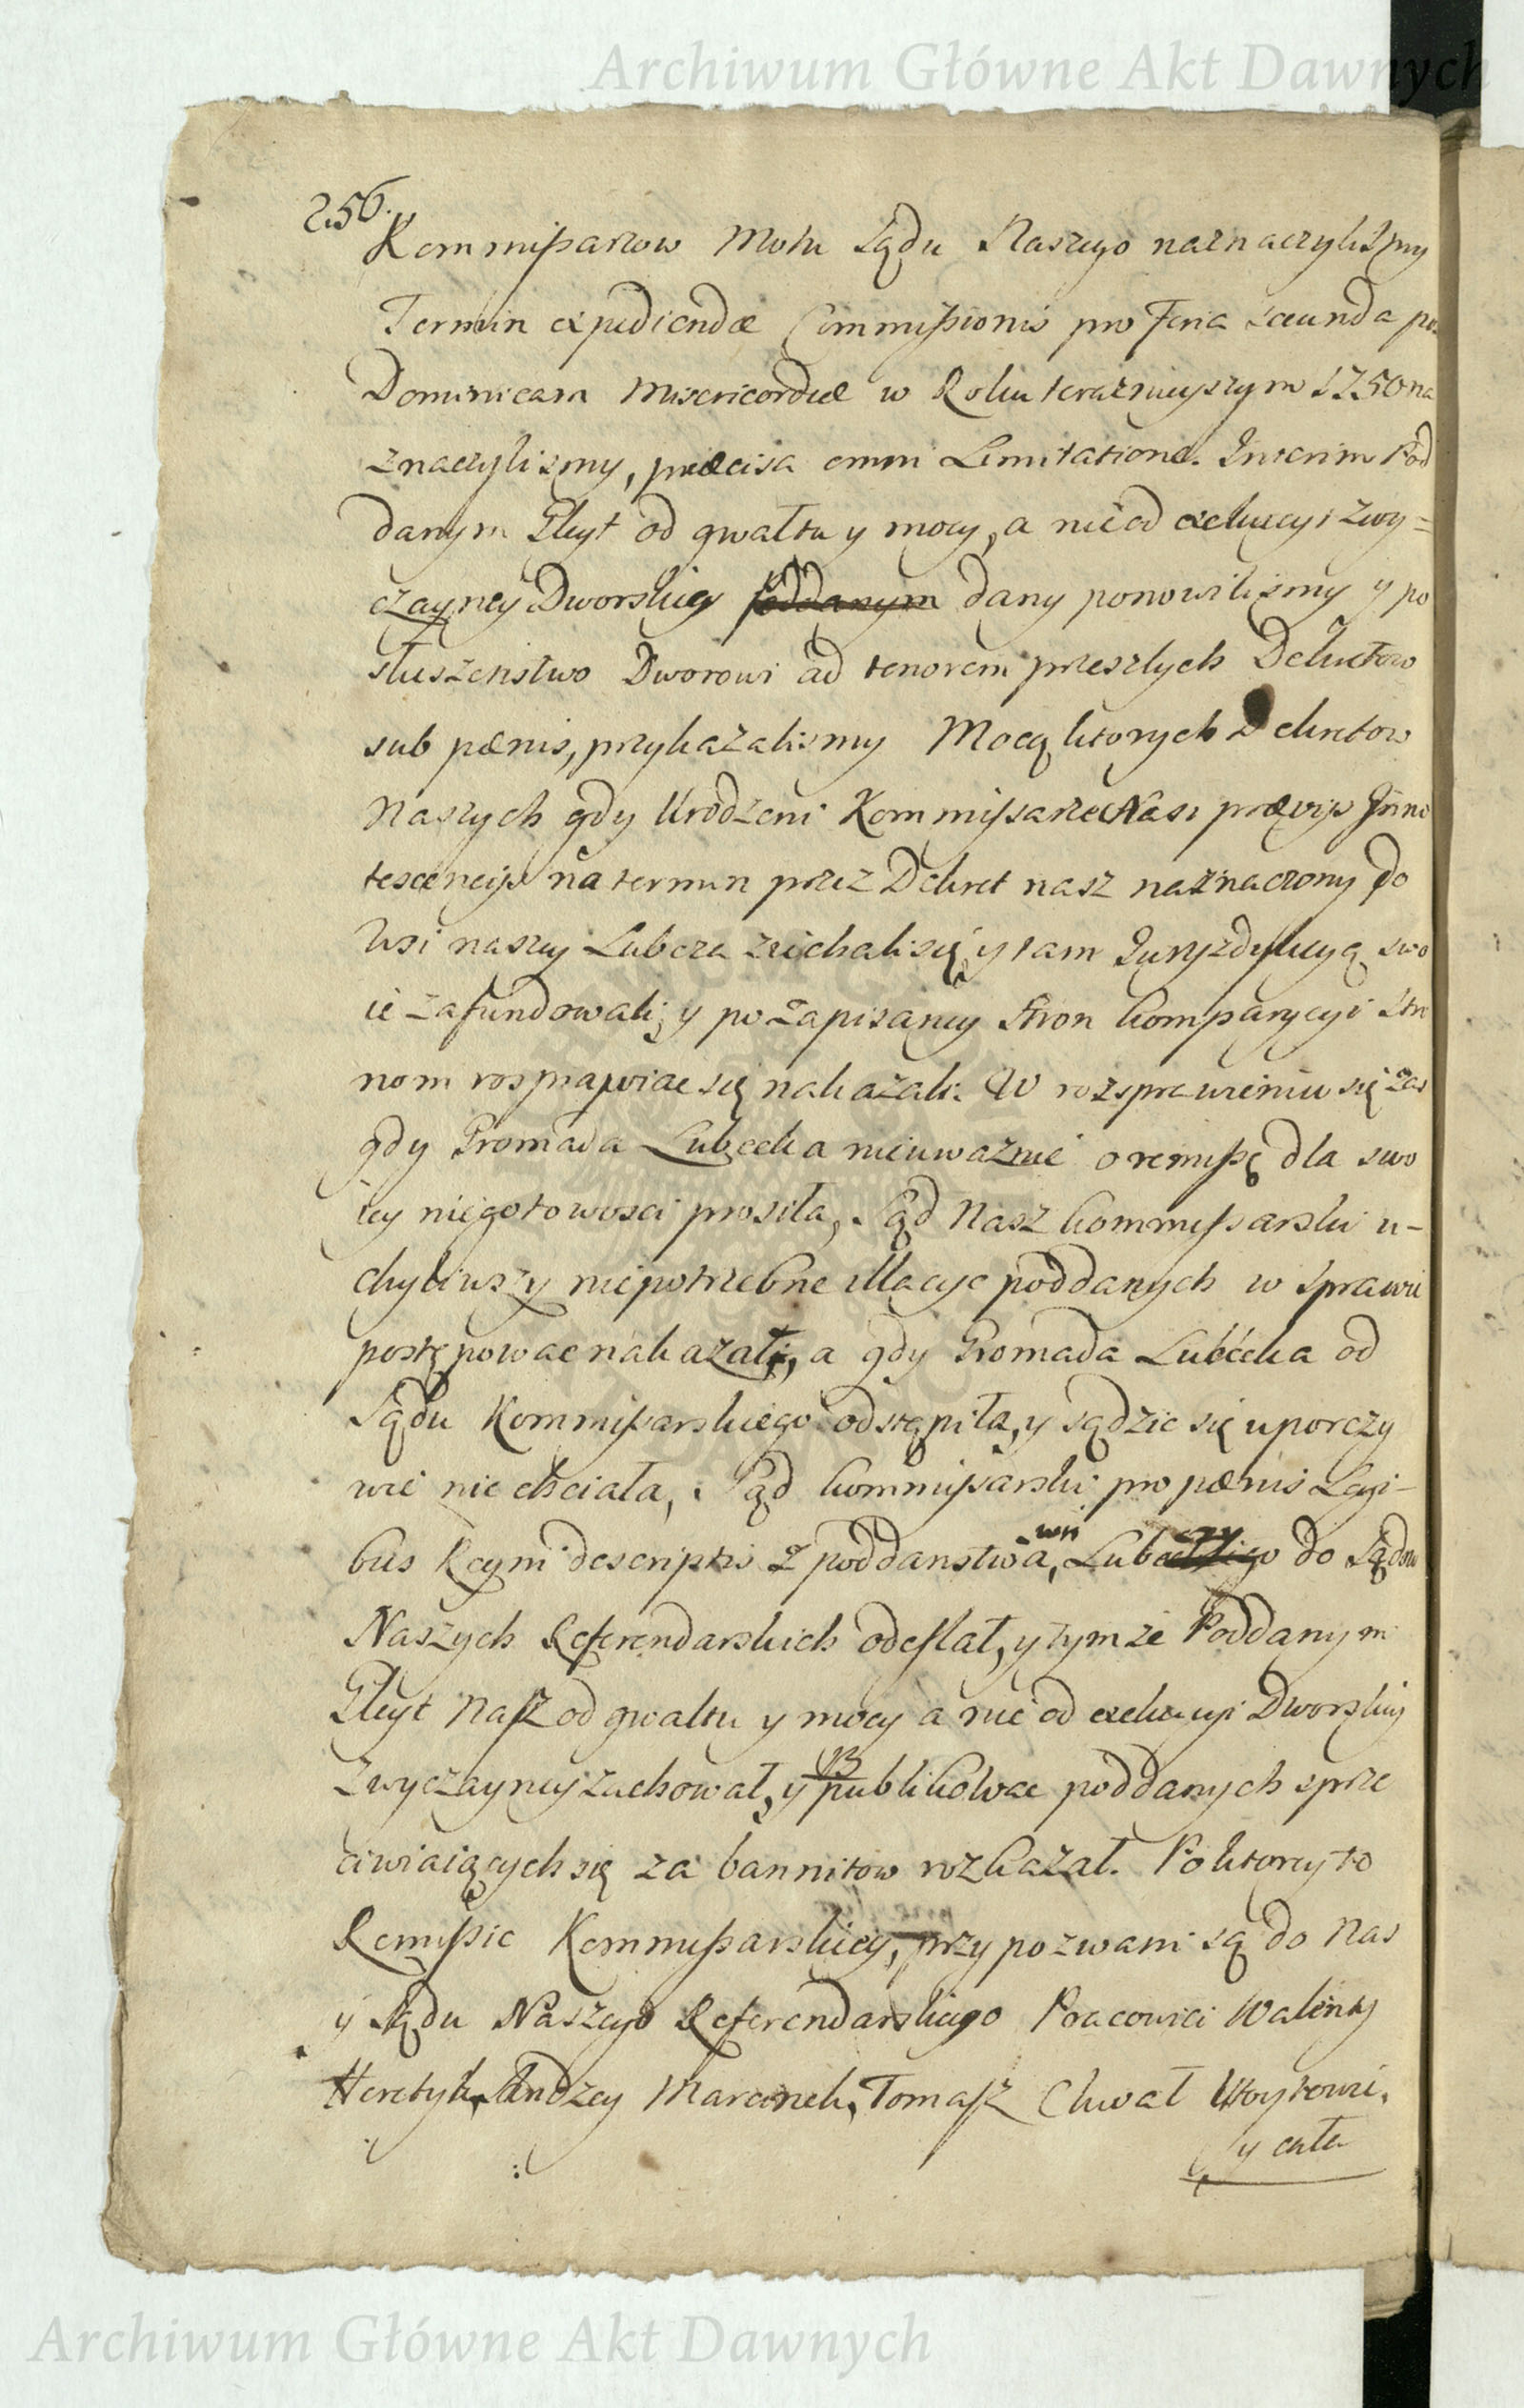 Archiwum Główne Akt Dawnych
256.
Kommissarzow Motu Sądu Naszego naznaczylismy
Termin expediendæ Commissionis pro Feria secunda pos
Dominicam Misericordiæ w Roku teraznieyszym 1750 na
znaczylismy, præcisa omni Limitatione. Interim Pod
danym Gleyt od gwałtu y mocy, a nie od exekucyi zwy=
czayney Dworskiey poddanym dany ponowilismy y po
słuszenstwo Dworowi ad tenorem przeszłych Dekretow
sub pænis, przykazalismy Mocą ktorych Dekretow
Naszych gdy Urodzeni Kommissarze Nasi prævijs Inno
tescencijs na termin przez Dekret nasz naznaczony do
Wsi naszey Lubcza ziechali się y tam Juryzdykcyą swo
ię zafundowali, y po zapisaney Stron komparycyi Stro
nom rosprawiac się nakazali. W rozsprawieniu się zas
gdy Gromada Lubecka nieuwaznie o remissę dla swo
iey niegotowosci prosiła, Sąd Nasz kommissarski u-
chyliwszy niepotrzebne illacye poddanych w sprawie
postępowac nakazał, a gdy Gromada Lubecka od
Sądu Kommissarskiego odstąpiła, y sądzic się uporczy
wie nie chciała, Sąd kommissarski pro pænis Legi-
bus Regni descriptis z poddanstwa, wsi Lubczy do Sądow
Naszych Referendarskich odesłał, y tymze Poddanym
Gleyt Nasz od gwałtu y mocy a nie od exekucyi Dworskiey
zwyczayney zachował, y publikowac poddanych sprze
ciwiaiących się za bannitow rozkazał. Po ktorey to
Remissie Kommissarskiey, przypozwani są do Nas
y Sądu Naszego Referendarskiego Pracowici Walenty
Heretyk, Andzey Marcinek, Tomasz Chwał Woytowie,
y cała
Archiwum Główne Akt Dawnych